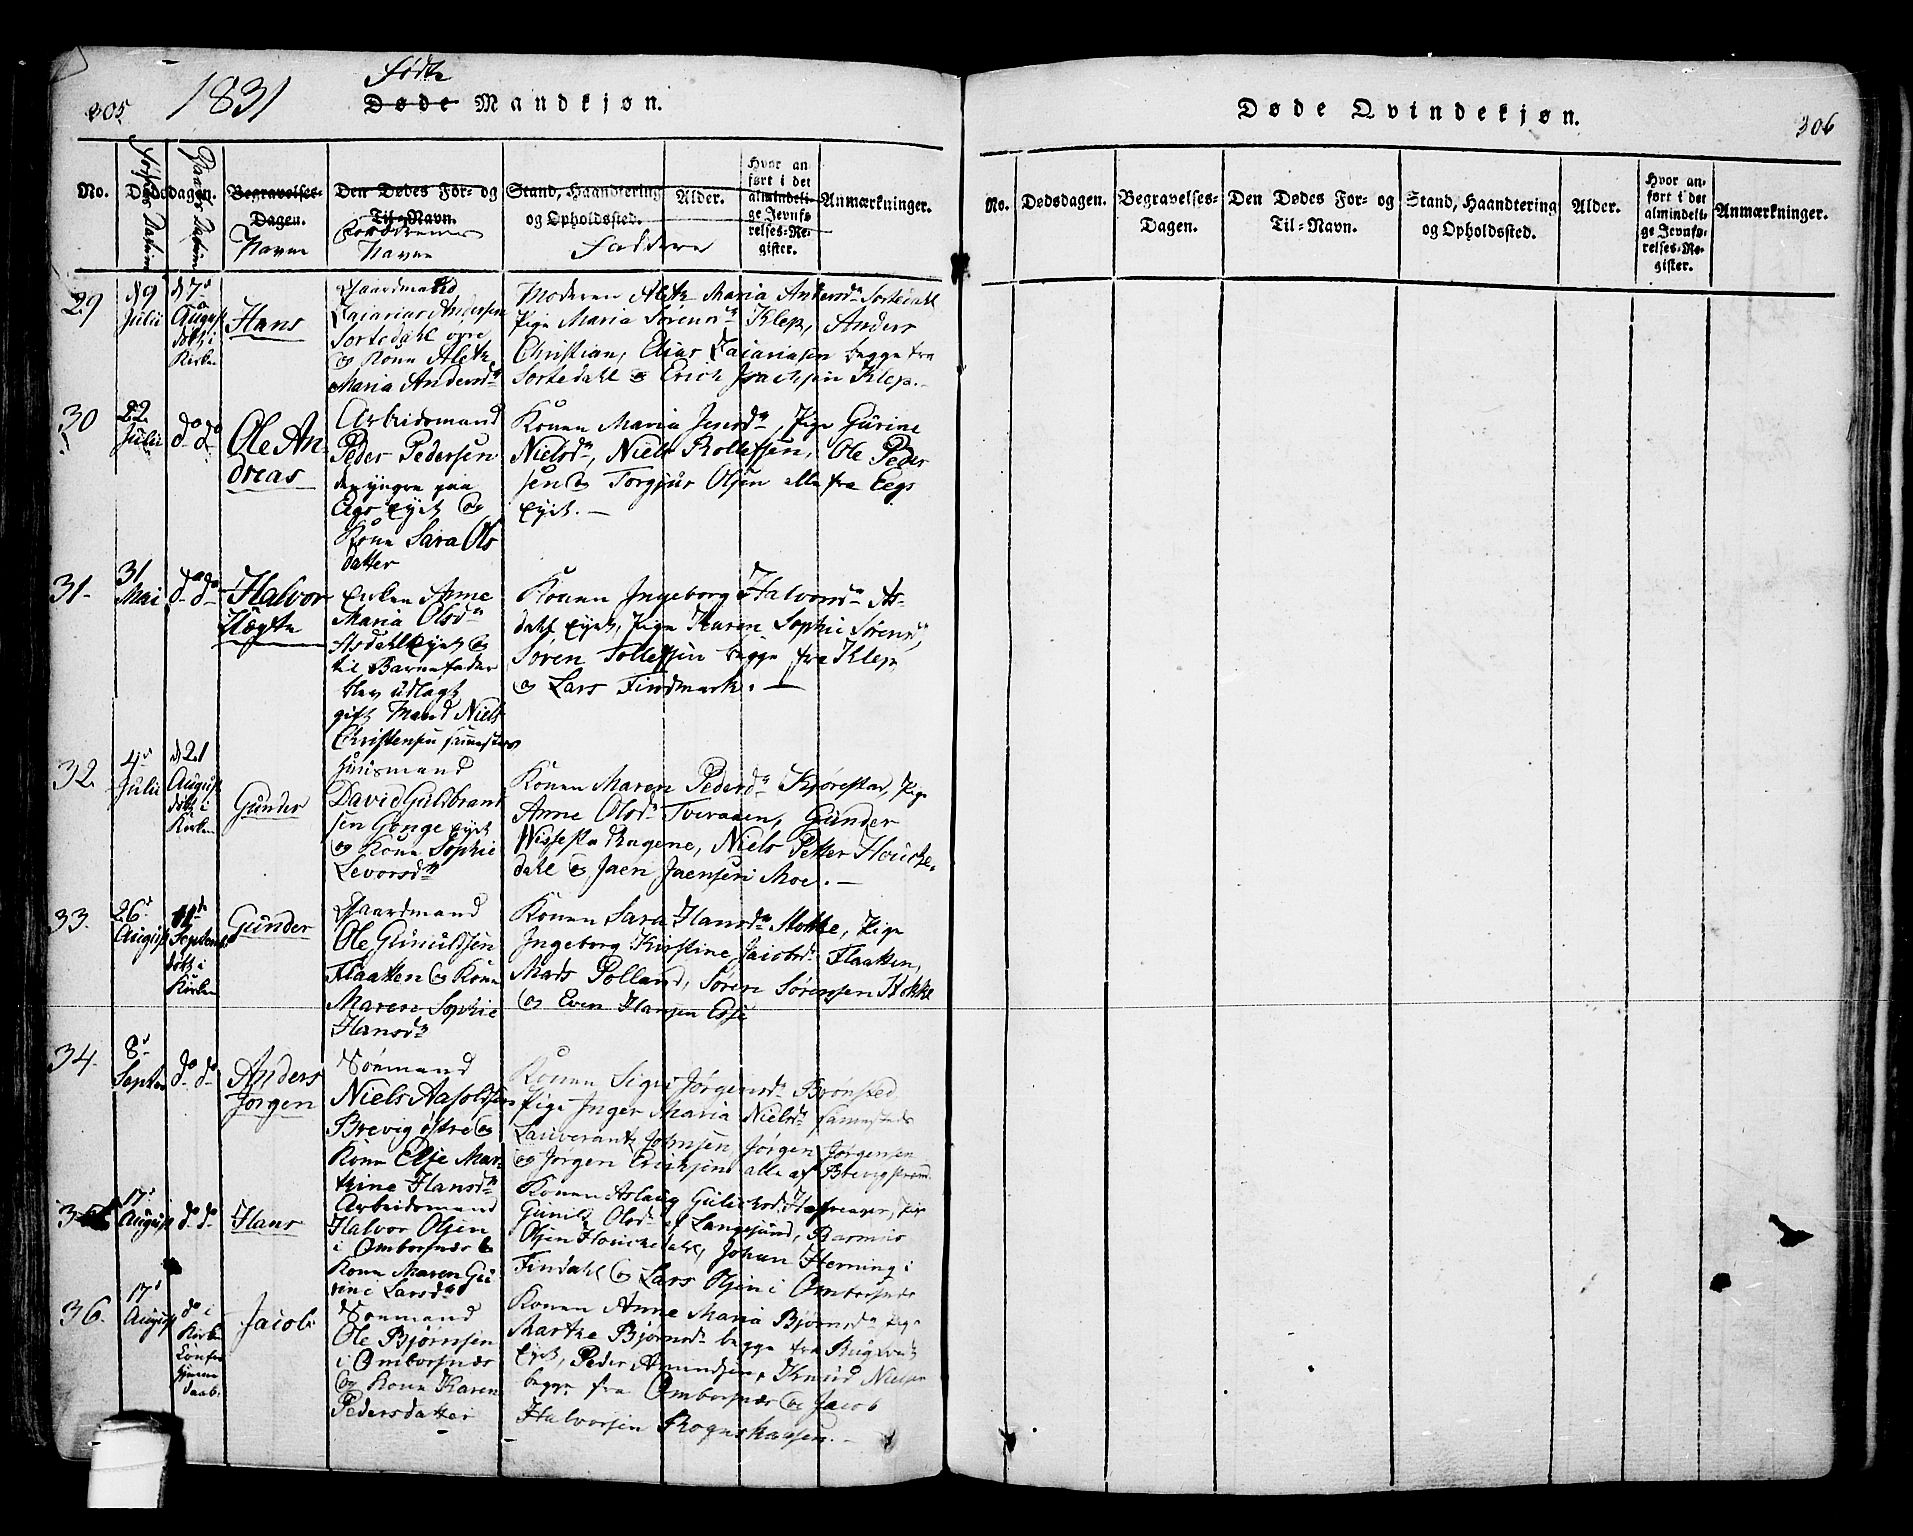 305.
1831
Fødte
Døde Mandkjøn.
No.
Dødsdagen.
Begravelses-
Dagen.
Navne
Den Dødes For- og
Til-Navn.
Forældrenes
Navne
Stand, Haandtering
og Opholdssted.
Faddere
Alder.
Hvor an
ført i det
almindeli-
ge Jevnfø-
relses-Re-
gister.
Anmærkninger.
29
d 9
Julii
d 7
August
døbt i
Kirken
Hans
Gaardmand
Zacarias Andersen
Sortedahl øvre
og Kone Alete
Maria Andersdr
Moderen Alete Maria Andersdr Sortedahl
Pige Maria Sørensdr Klep, Anders
Christian, Elias Zacariasen begge fra
Sortedahl og Erich Isachsen Klep.
30
22
Julii
do do
Ole An
dreas
Arbeidsmand
Peder Pedersen
den yngre paa
Eegs Eyet og
Kone Sara Ols
datter
Konen Maria Jensdr, Pige Gurine
Nielsdr, Niels Rollefsen, Ole Peder
sen og Torgjur Olsen alle fra Eegs
Eyet.
31
31
Mai
do do
Halvor
Uægte
Enken Anne
Maria Olsdr
Asdahl Eyet og
til Barnefader
blev udlagt
gift Mand Niels
Christensen sammesteds
Konen Ingeborg Halvorsdr As-
dahl Eyet, Pige Karen Sophie Sørensdr,
Søren Tollefsen begge fra Klep
og Lars Findmark.
32.
4
Julii
d 21
August
døbt i
Kirken
Gunder
Huusmand
David Guldbrand
sen Gonge Eyet
og Kone Sophie
Levorsdr
Konen Maren Pedersdr Kjørestad, Pige
Anne Olsdr Tveraaen, Gunder
Nissestad Hagene, Niels Petter Houcke-
dahl og Jaen Jaensen Moe.
33.
26
August
11
Septembr
døbt i
Kirken
Gunder
Gaardmand
Ole Gunuldsen
Flaatten og Kone
Maren Sophie
Hansdr
Konen Sara Hansdr Stokke, Pige
Ingeborg Kirstine Jacobsdr Flaatten,
Mads Polland, Søren Sørensen Stokke
og Even Hansen
34.
8
Septbr
do do
Anders
Jørgen
Sømand
Niels Aasoldsen
Brevig østre og
Kone Else Mar-
thine Hansdr
Konen Sigri Jørgensdr Brønsted
Pige Inger Maria Nielsdr sammesteds
Lauverants Johnsen, Jørgen Jørgensen
og Jørgen Erichsen alle af Brevigstrand
17
August
do do
Hans
Arbeidsmand
Halvor Olsen
i Ombordsnæs og
Kone Maren Gu
rine Larsdr
Konen Aslaug Pige
Gunild Olsdr af Langesund, Rasmus
Olsen Houckedahl, Johan Flerning i
Findahl og Lars Olsen i Ombordsnæs
36.
17
August
do i
Kirken
Jacob
Sømand
Ole Bjørnsen
i Ombordsnæs
og Kone Karen
Pedersdatter
Konen Anne Maria Bjørnsdr Pige
Marthe Bjørnsdr begge fra
Eyet, Peder Amundsen, Knud Nielsen
begge fra Ombordsnæs og Jacob
Halvorsen
Døde Qvindekjøn.
306
No.
Dødsdagen.
Begravelses-
Dagen.
Den Dødes For- og
Til-Navn.
Stand, Haandtering
og Opholdssted.
Alder.
Hvor an-
ført i det
almindeli-
ge Jevnfø-
relses-Re-
gister.
Anmærkninger.